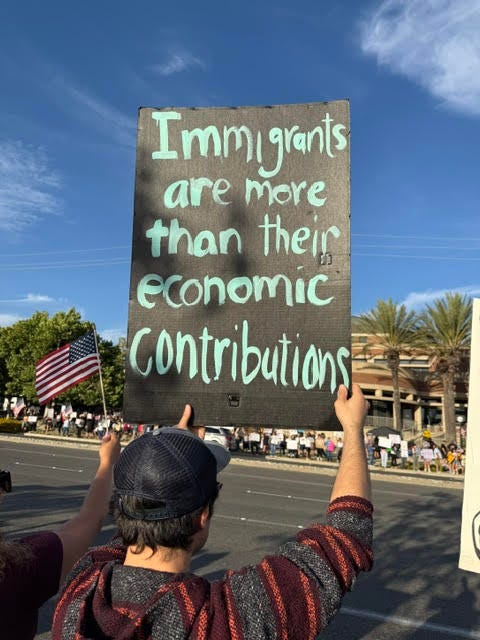 Immigrants
are more
than their
economic
Contributions